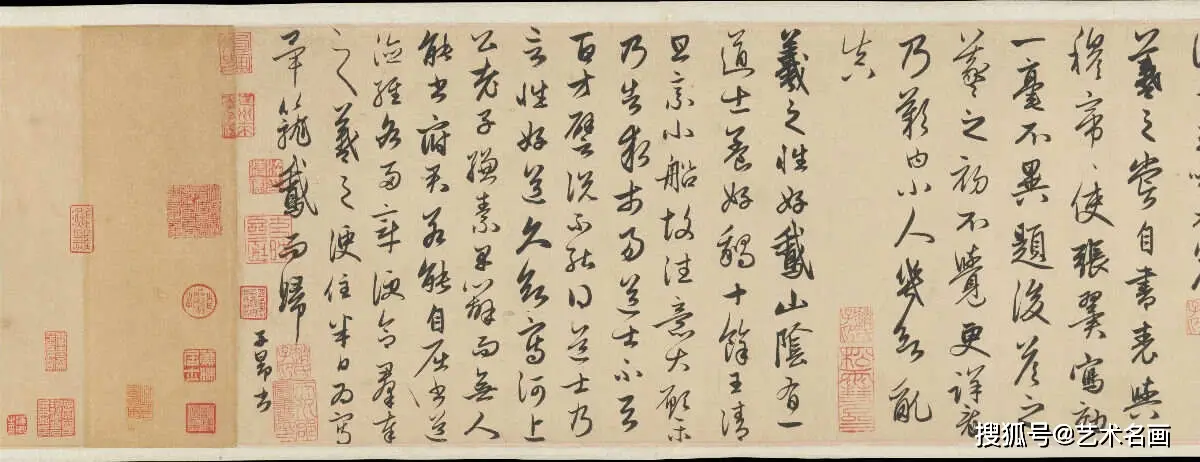 羲之嘗自書表與
穆帝〻使張翼寫効
一毫不異題後答之
羲之初不覺更詳看
乃歎曰小人幾欲亂
真
羲之性好鵞山陰有一
道士養好鵝十餘王清
旦乘小船故往意大願樂
乃告求市易道士不與
百方譬說不能得道士乃
言性好道久欲寫河上
公老子縑素早辦而無人
能書府君若能自屈書道
德經各兩章便合羣奉
之羲之便住半日為寫
畢籠鵞而歸
子昂書
搜狐号@艺术名画